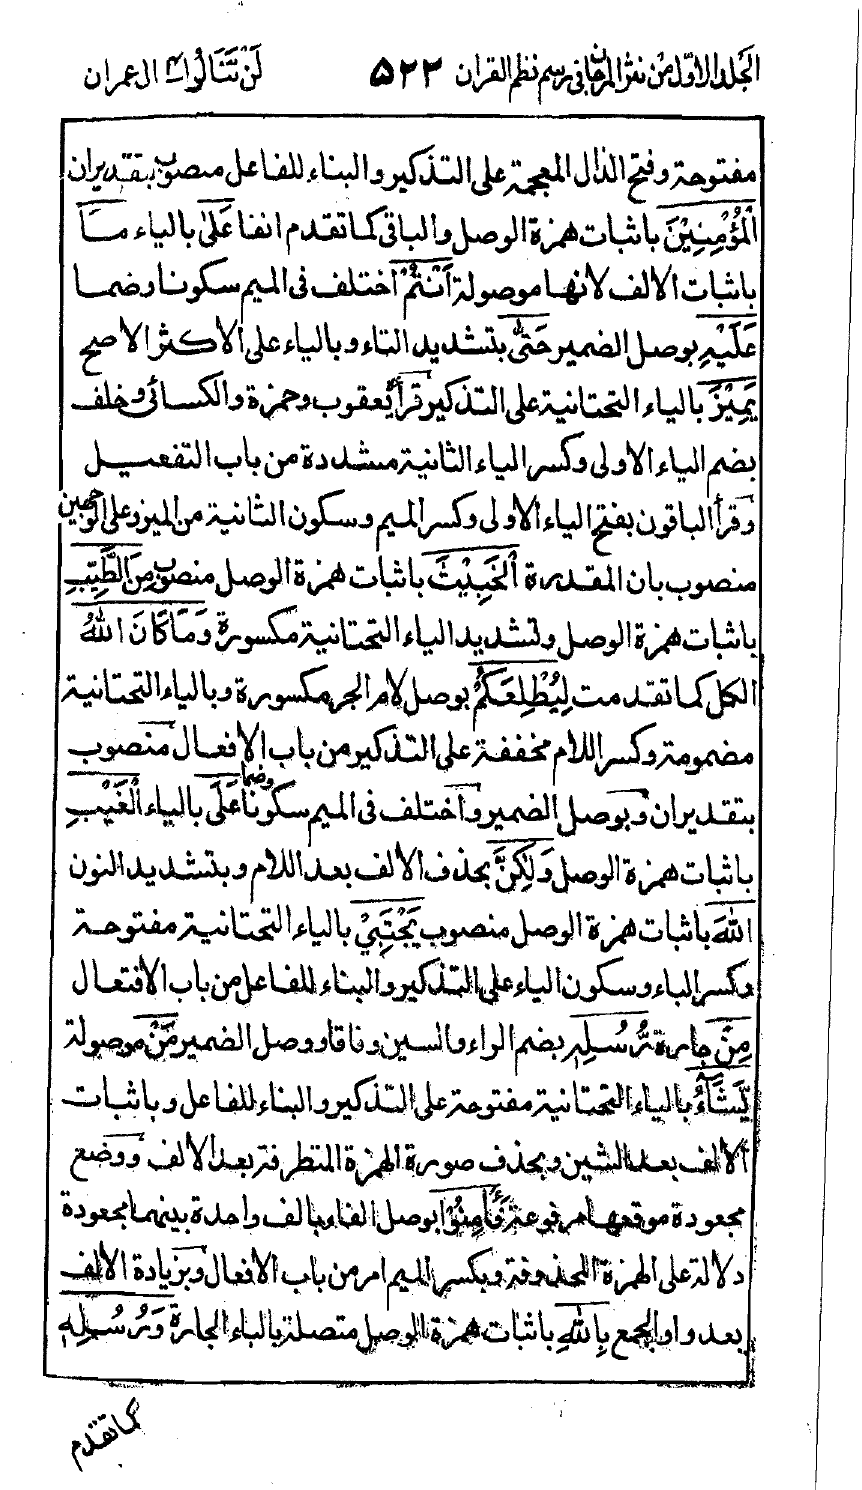 الجلد الاول من نثر المرجان في رسم نظم القران ۵۲۲ لَنْ تَنَالُوا ۴ ال عمران
مفتوحة وفتح الذال المعجمة على التذكير والبناء للفاعل منصوب بتقديران
الْمُؤْمِنِيْنَ باثبات همزة الوصل والباقى كما تقدم انفا عَلىٰ بالياء مَا
باثبات الالف لانها موصولة اَنْتُمْ اختلف فى الميم سكونا وضما
عَلَيْهِ بوصل الضمير حَتّٰى بتشديد التاء وبالياء على الاكثر الاصح
يَمِيْزَ بالياء التحتانية على التذكير قرأ يعقوب وحمزة والكسائى وخلف
بضم الياء الاولى وكسر الياء الثانية مشددة من باب التفعيل
وقرأ الباقون بفتح الياء الاولى وكسر الميم وسكون الثانية من الميز وعلى الوجهين
منصوب بان المقدرة الْخَبِيْثَ باثبات همزة الوصل منصوب مِنَ الطَّيِّبِ
باثبات همزة الوصل وتشديد الياء التحتانية مكسورة وَمَا كَانَ اللّٰهُ
الكل كما تقدمت لِيُطْلِعَكُمْ بوصل لام الجر مكسورة وبالياء التحتانية
مضمومة وكسر اللام مخففة على التذكير من باب الافعال منصوب
بتقديران وبوصل الضمير واختلف فى الميم سكونا وضما عَلَى بالياء الْغَيْبِ
باثبات همزة الوصل وَلٰكِنَّ بحذف الالف بعد اللام وبتشديد النون
اللّٰهَ باثبات همزة الوصل منصوب يَجْتَبِيْ بالياء التحتانية مفتوحة
وكسر الباء وسكون الياء على التذكير والبناء للفاعل من باب الافتعال
مِنْ جارة رُّسُلِهٖ بضم الراء والسين وفاقا ووصل الضمير مَنْ موصولة
يَّشَآءُ بالياء التحتانية مفتوحة على التذكير والبناء للفاعل وباثبات
الالف بعد الشين وبحذف صورة الهمزة المتطرفة بعد الالف ووضع
مجعودة موقعها مرفوعة فَاٰمِنُوْا بوصل الفاء وبالف واحدة بينهما مجعودة
دلالة على الهمزة المحذوفة وبكسر الميم امر من باب الافعال وبزيادة الالف
بعد واو الجمع بِاللّٰهِ باثبات همزة الوصل متصلة بالباء الجارة وَرُسُلِهٖ
كما تقدم